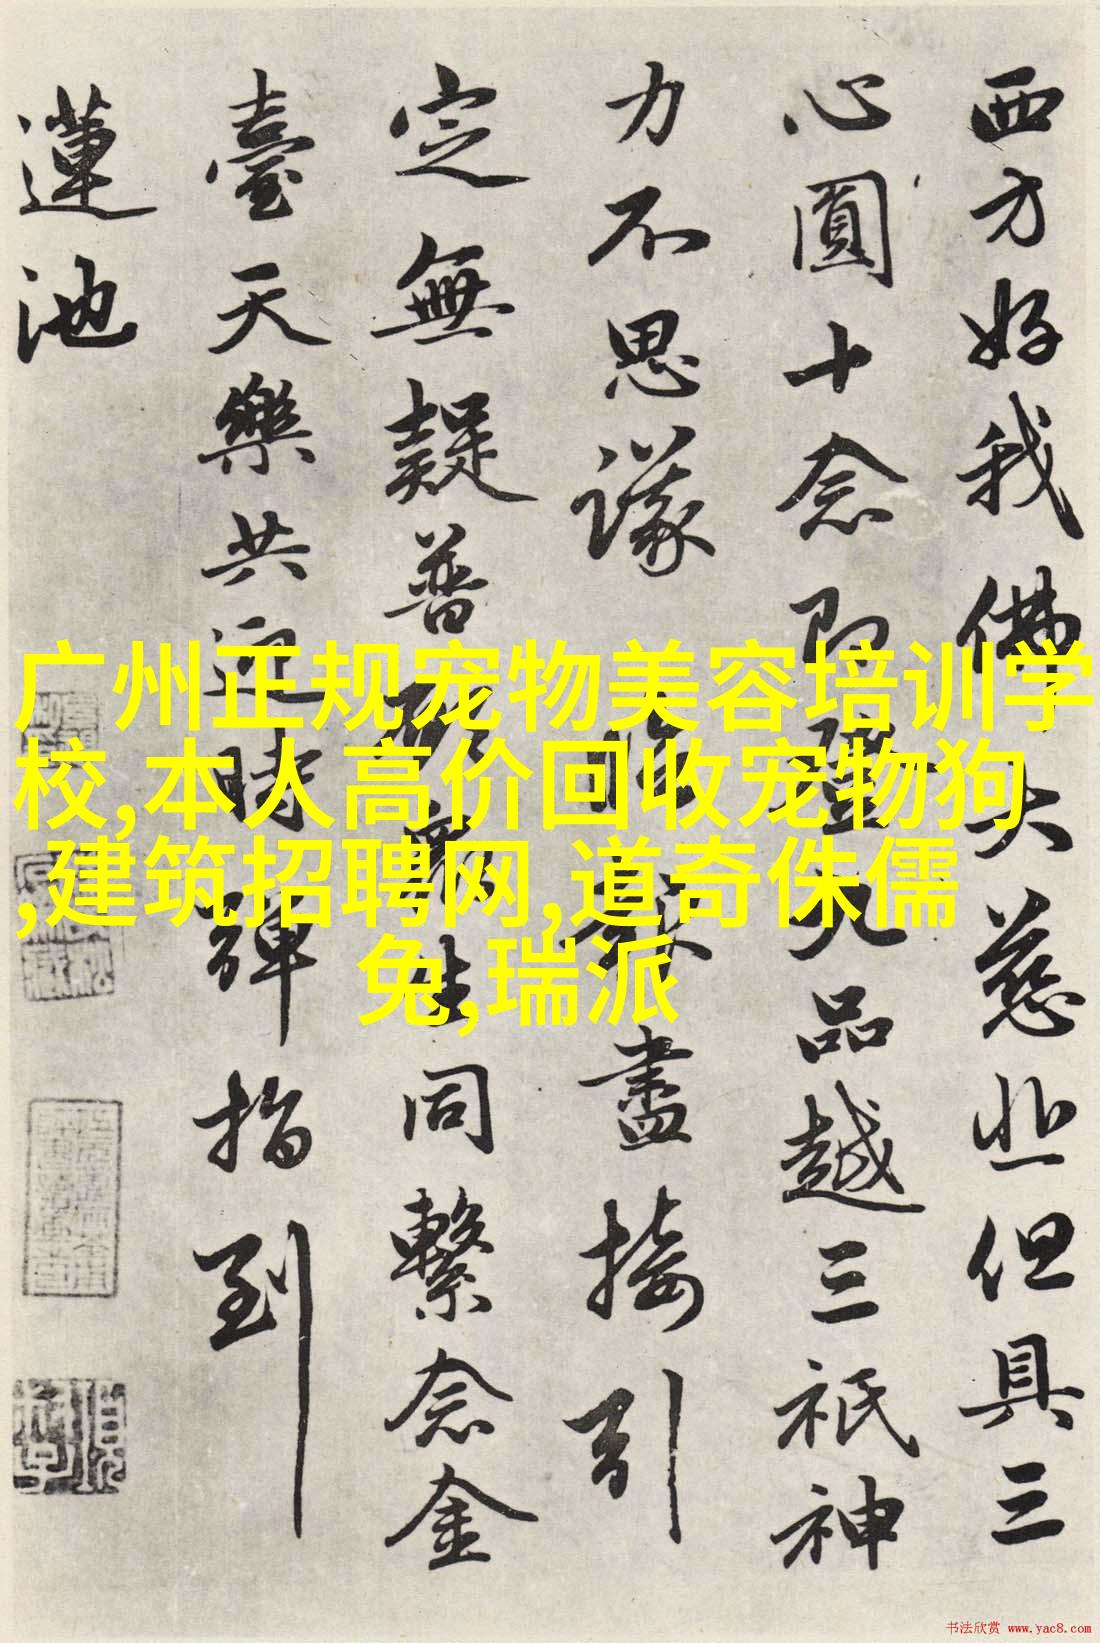 西方好我佛大慈悲但具三
心圓十念即登九品越三祇神
力不思議臨報盡接引
定無疑普願衆生同繫念金
臺天樂共迎時彈指到
蓮池
广州正规宠物美容培训学
校,本人高价回收宠物狗
,建筑招聘网,道奇侏儒
兔,瑞派
书法欣赏 www.yac8.com